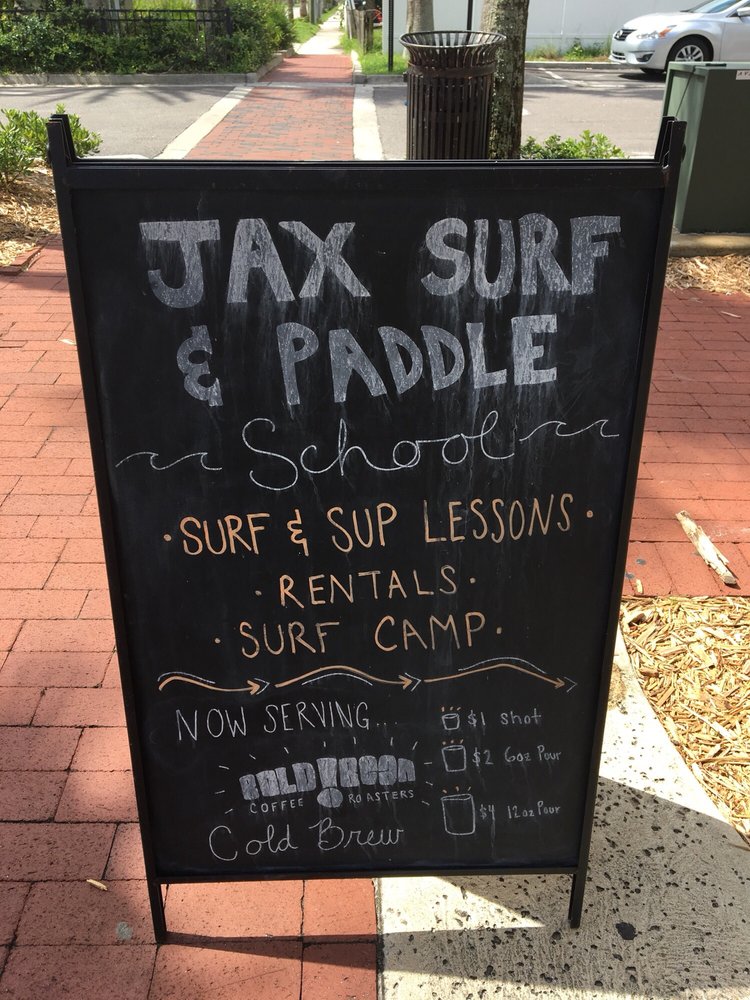 JAX SURF
& PADDLE
School
· SURF & SUP LESSONS ·
· RENTALS ·
· SURF CAMP ·
NOW SERVING...
BOLD BEAN
COFFEE ROASTERS
Cold Brew
$1 shot
$2 6oz Pour
$4 12oz Pour